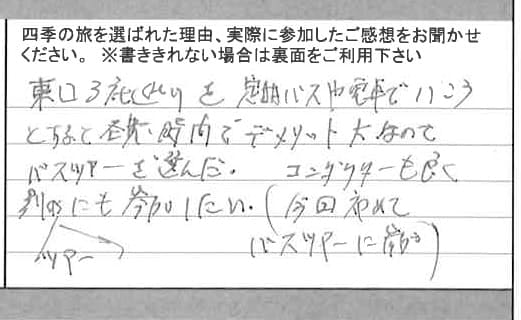 四季の旅を選ばれた理由、実際に参加したご感想をお聞かせ
ください。 ※書ききれない場合は裏面をご利用下さい
東口3社めぐりを 定期バスや電車でいこう
とすると 時間でデメリット大なので
バスツアーを選んだ。 コンダクターも良く
別のにも参加したい。(今回初めて
ツアー バスツアーに参加)